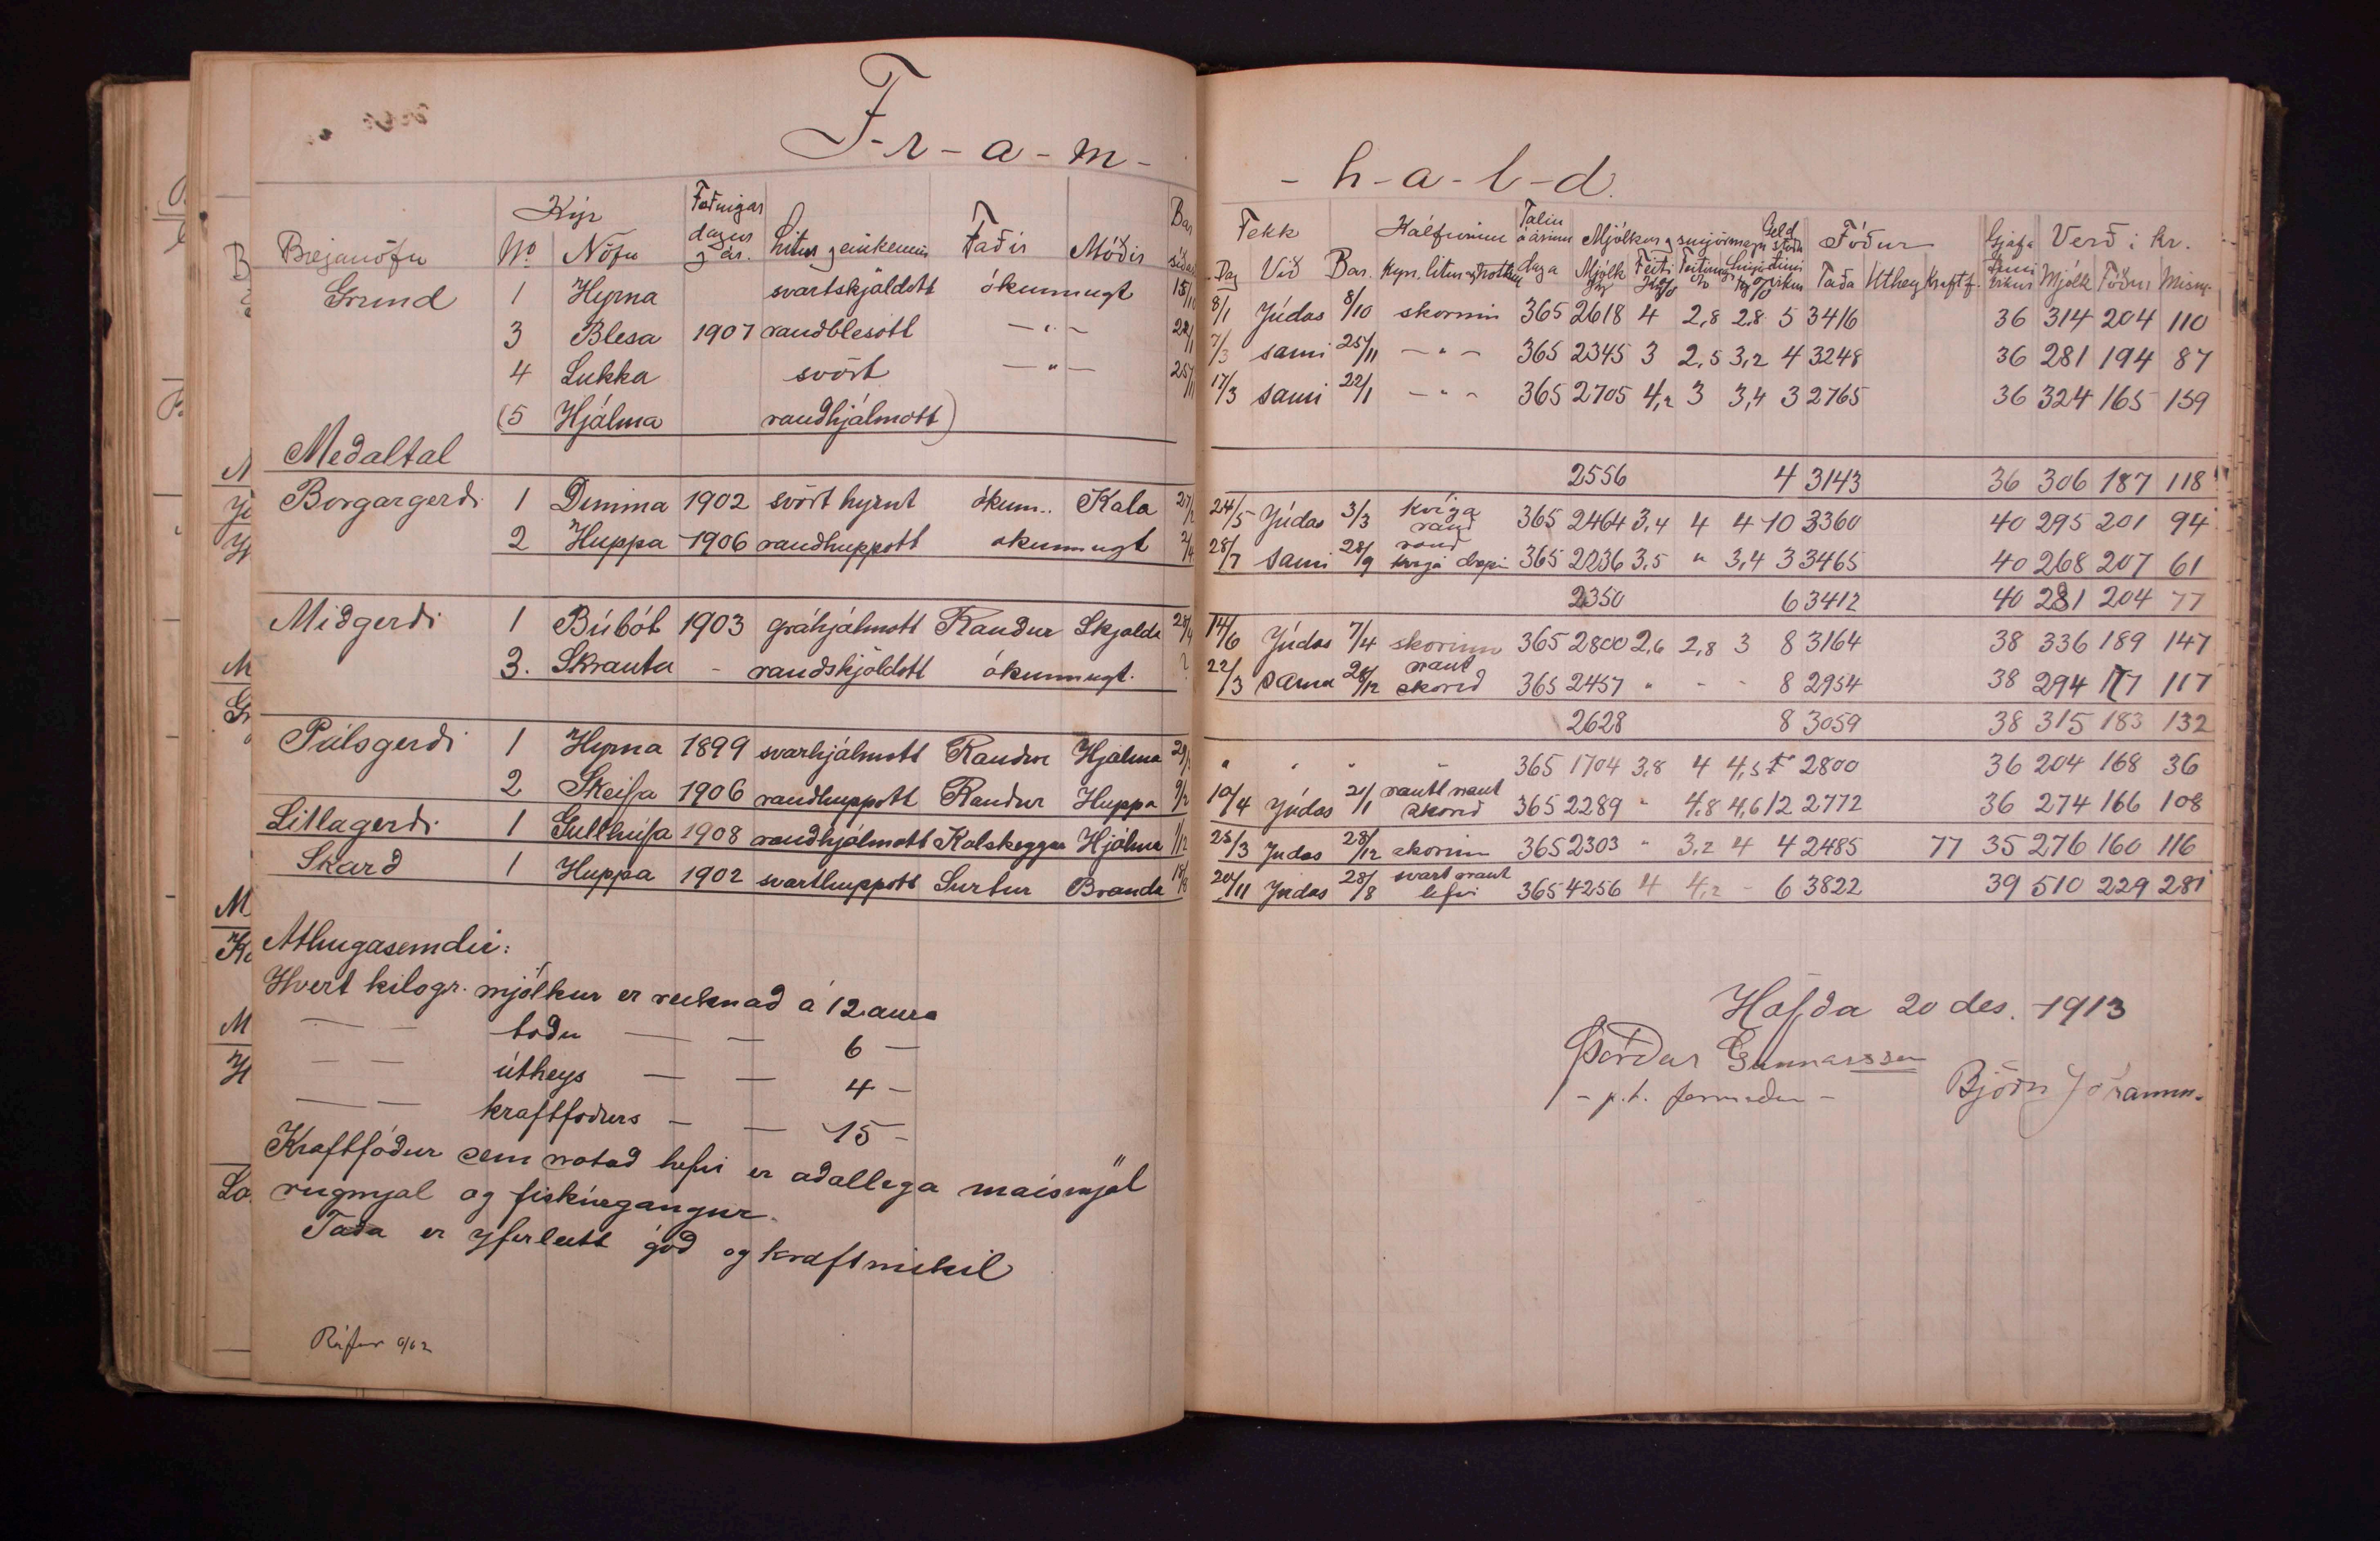 F-r-a-m-
Kýr Fæðingar Bar
Bæjanöfn No Nöfn dagur og ár. Litur og einkenni Faðir Móðir síðast
Grund 1 Hyrna svartskjöldótt ókunnugt 15/10
3 Blesa 1907 rauðblesótt — " — 22/1
4 Lukka svört — " — 25/11
(5 Hjálma rauðhjálmótt)
Meðaltal
Borgargerði 1 Dimma 1902 svört hyrnt ókunn.. Kala 27/2
2 Huppa 1906 rauðhuppótt ókunnugt 2/4
Miðgerði 1 Búbót 1903 gráhjálmótt Rauður Skjalda 28/4
3. Skrauta - rauðskjöldótt ókunnugt. ?
Pálsgerði 1 Hyrna 1899 svarhjálmótt Rauður Hjálma
2 Skeifa 1906 rauðhuppótt Rauður Huppa 9/2
Litlagerði 1 Gullhúfa 1908 rauðhjálmótt Kolskeggur Hjálma 1/12
Skarð 1 Huppa 1902 svarthuppótt Surtur Branda 18/8
Athugasemdir:
Hvert kilogr. mjólkur er reiknað á 12 aura
— — töðu — — 6 —
— — útheys — — 4 —
— — kraftfóðurs — — 15 —
Kraftfóður sem notað hefir er aðallega maísmjöl
rúgmjöl og fiskúrgangur.
Taða er yferleitt góð og kraftmikil
-h-a-l-d.
Fekk Kálfurinn Talin á árinu Mjólkur og smjörmagn Geld staða Fóður Gjafa Verð í kr.
Dag Við Bar. Kyn, litur og daga Mjólk kg Feiti tími vikur Taða Úthey Kraftf. tími vikur Mjólk Fóður Mism.
8/1 Júdas 8/10 skorinn 365 2618 4 2,8 2,8 5 3416 36 314 204 110
7/3 sami 25/11 — " — 365 2345 3 2,5 3,2 4 3248 36 281 194 87
17/3 sami 22/1 — " — 365 2705 4,2 3 3,4 3 2765 36 324 165 159
2556 4 3143 36 306 187 118
24/5 Júdas 3/3 kvíga rauð 365 2464 3,4 4 4 10 3360 40 295 201 94
28/7 sami 28/9 rauð kvíga drepin 365 2236 3,5 " 3,4 3 3465 40 268 207 61
2350 6 3412 40 281 204 77
14/6 Júdas 7/4 skorinn 365 2800 2,6 2,8 3 8 3164 38 336 189 147
22/3 sama 28/12 naut skorið 365 2457 " - - 8 2954 38 294 177 117
2628 8 3059 38 315 183 132
" " " " 365 1704 3,8 4 4,5 2800 36 204 168 36
10/4 Júdas 21/1 rautt naut skorið 365 2289 " 4,8 4,6 12 2772 36 274 166 108
25/3 Judas 28/12 skorinn 365 2303 " 3,2 4 4 2485 77 35 276 160 116
20/11 Judas 28/8 svart naut lifir 365 4256 4 4,2 - 6 3822 39 510 229 281
Höfða 20 des. 1913
Þórður Gunnarsson
- p.t. formaður -
Björn Jóhanns.